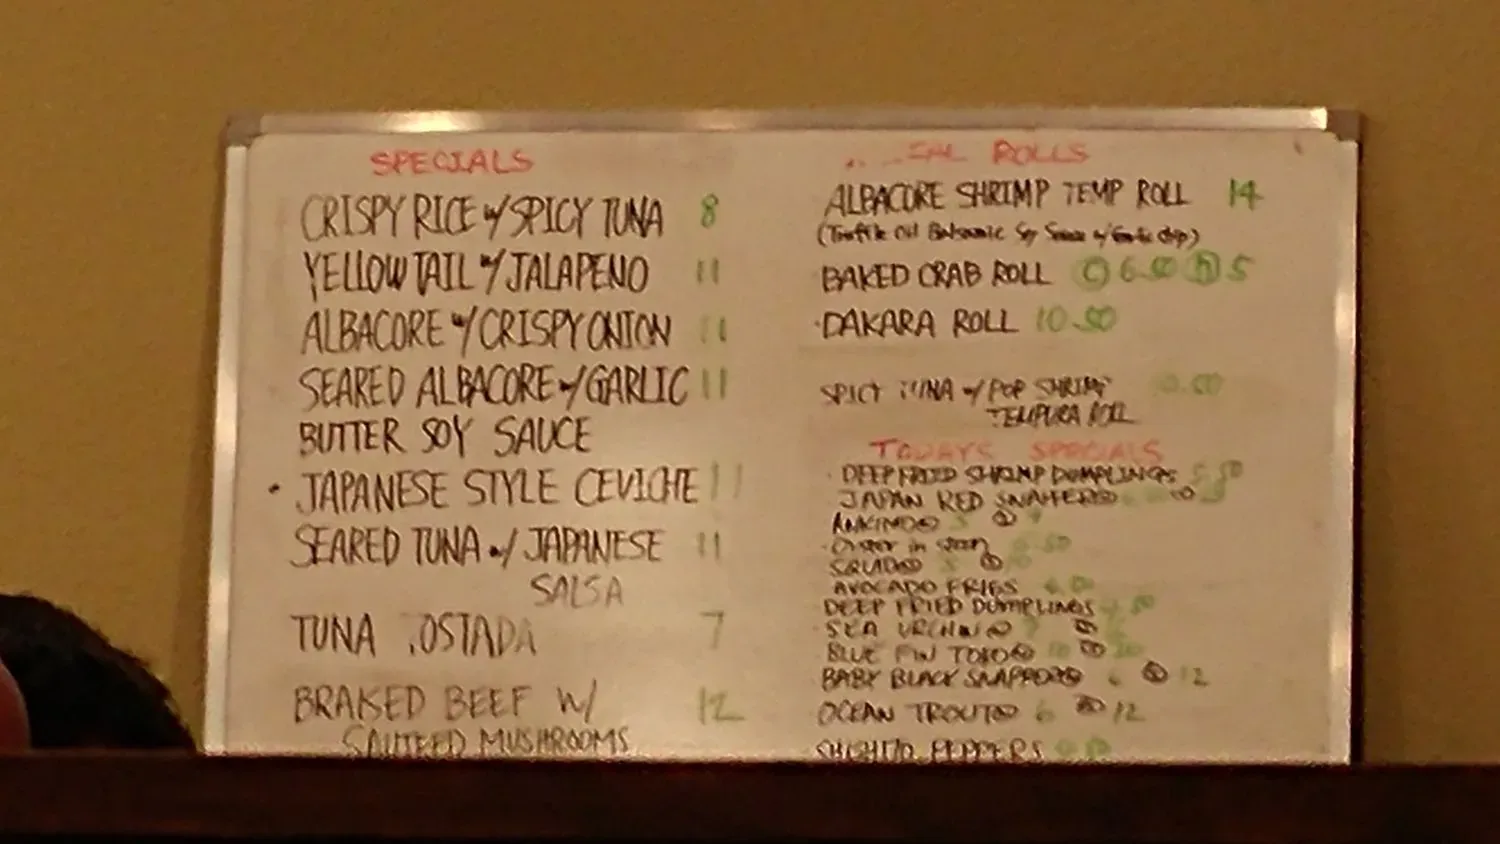 SPECIALS
CRISPY RICE w/ SPICY TUNA 8
YELLOWTAIL w/ JALAPENO 11
ALBACORE w/ CRISPY ONION 11
SEARED ALBACORE w/ GARLIC 11
BUTTER SOY SAUCE
· JAPANESE STYLE CEVICHE 11
SEARED TUNA w/ JAPANESE 11
SALSA
TUNA OSTADA 7
BRAISED BEEF W/ 12
SAUTEED MUSHROOMS
ROLLS
ALBACORE SHRIMP TEMP ROLL 14
(Truffle Oil Balsamic Soy Sauce w/ Garlic chip)
BAKED CRAB ROLL C 6.50 h 5
·DAKARA ROLL 10.50
SPICY TUNA w/ POP SHRIMP
TEMPURA ROLL
TODAYS SPECIALS
· DEEP FRIED SHRIMP DUMPLINGS
JAPAN RED SNAPPER
ANKIMO
· Oyster in
SQUID
AVOCADO FRIES
DEEP FRIED DUMPLINGS
SEA URCHIN
BLUE FIN TORO
BABY BLACK SNAPPER 12
OCEAN TROUT 6 12
SHISHITO PEPPERS